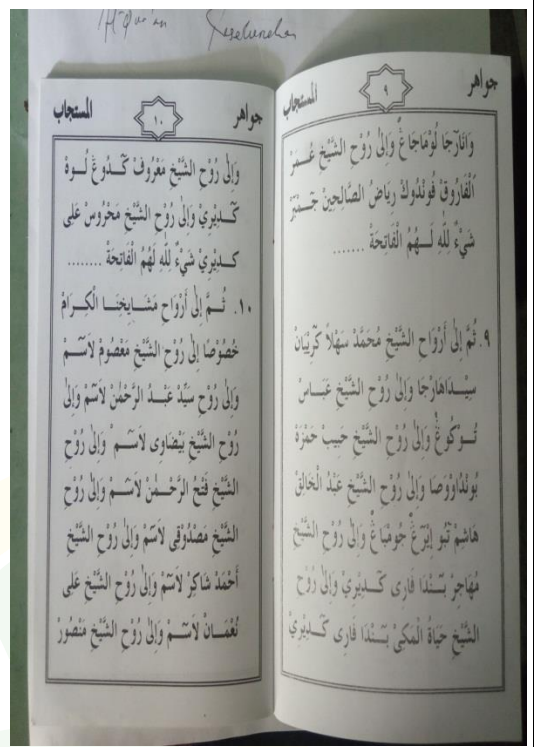 Al-Qur'an
جواهر ٩ المستجاب
وَانَارَجَا لُوْمَاجَاغْ وَإِلَى رُوْحِ الشَّيْخِ عُمَرْ
الْفَارُوقْ فُونْدُوكْ رِيَاضُ الصَّالِحِينْ جَمْبَرْ
شَيْءٌ لِلّٰهِ لَهُمُ الْفَاتِحَةْ .......
٩. ثُمَّ إِلَى أَرْوَاحِ الشَّيْخِ مُحَمَّدْ سَهْلاً كَرِيْيَانْ
سِيْدَاهَارْجَا وَإِلَى رُوْحِ الشَّيْخِ عَبَّاسْ
تُوْكُوغْ وَإِلَى رُوْحِ الشَّيْخِ حَبِيبْ حَمْزَهْ
بُونْدَاوْوصَا وَإِلَى رُوْحِ الشَّيْخِ عَبْدُ الْخَالِقْ
هَاشِمْ تَبُو إِيْرَغْ جُومْبَاغْ وَإِلَى رُوْحِ الشَّيْخِ
مُهَاجِرْ بَنْدَا فَارِى كَدِيْرِيْ وَإِلَى رُوْحِ
الشَّيْخِ حَيَاةُ الْمَكِّىْ بَنْدَا فَارِى كَدِيْرِيْ
جواهر ١٠ المستجاب
وَإِلَى رُوْحِ الشَّيْخِ مَعْرُوفْ كَدُوغْ لُوهْ
كَدِيْرِيْ وَإِلَى رُوْحِ الشَّيْخِ مَحْرُوسْ عَلِى
كَدِيْرِيْ شَيْءٌ لِلّٰهِ لَهُمُ الْفَاتِحَةْ ........
١٠. ثُمَّ إِلَى أَرْوَاحِ مَشَايِخِنَا الْكِرَامْ
خُصُوْصًا إِلَى رُوْحِ الشَّيْخِ مَعْصُومْ لاَسَمْ
وَإِلَى رُوْحِ سَيِّدْ عَبْدُ الرَّحْمٰنْ لاَسَمْ وَإِلَى
رُوْحِ الشَّيْخِ بَيْضَاوِى لاَسَمْ وَإِلَى رُوْحِ
الشَّيْخِ فَتْحُ الرَّحْمٰنْ لاَسَمْ وَإِلَى رُوْحِ
الشَّيْخِ مَصْدُوقِى لاَسَمْ وَإِلَى رُوْحِ الشَّيْخِ
أَحْمَدْ شَاكِرْ لاَسَمْ وَإِلَى رُوْحِ الشَّيْخِ عَلِى
نُعْمَانْ لاَسَمْ وَإِلَى رُوْحِ الشَّيْخِ مَنْصُورْ